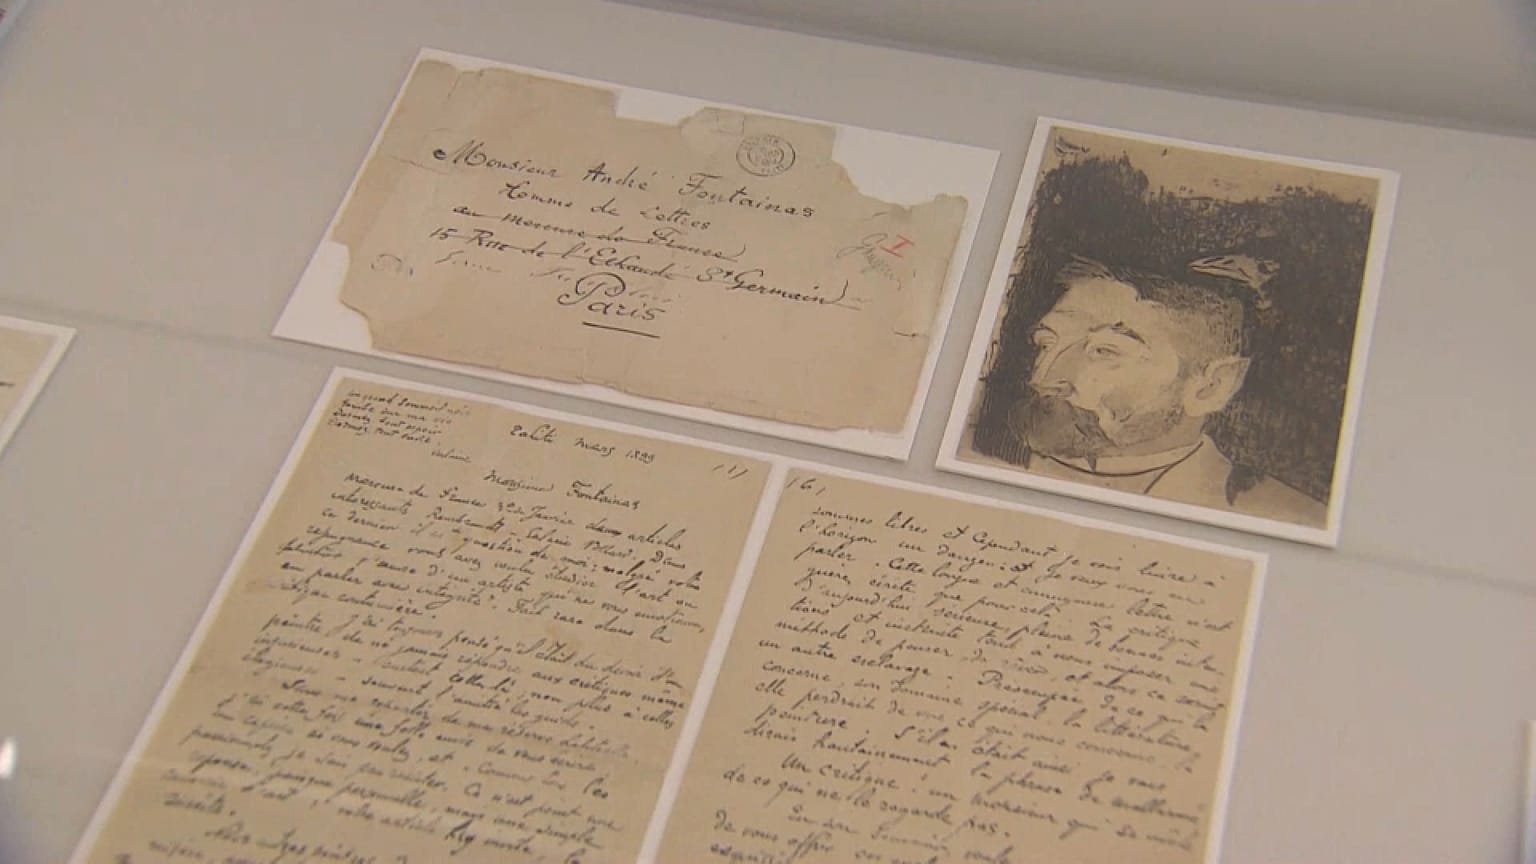 Monsieur André Fontainas
Homme de Lettres
au mercure de France
15 Rue de l'Echaudé St Germain
Paris
I
Tahiti mars 1899
(1)
Monsieur Fontainas
mercure de France No de Janvier deux articles
intéressants Rembrandt - Galerie Vollard. Dans
ce dernier il est question de moi: malgré votre
répugnance vous avez voulu étudier l'art ou
l'œuvre d'un artiste qui ne vous émotionne,
en parler avec intégrité. Fait rare dans la
critique coutumière.
J'ai toujours pensé qu'il était du devoir d'un
peintre de ne jamais répondre aux critiques même
injurieuses - surtout celles-là; non plus à celles
élogieuses - souvent l'amitié les guide.
Sans me départir de ma réserve habituelle,
j'ai cette fois une folle envie de vous écrire,
un caprice si vous voulez, et - comme tous les
passionnels je sais peu résister. Ce n'est point une
réponse, puisque personnelle, mais une simple
causerie d'art; votre article y invite, la
suscite.
(6)
sommes libres et cependant je vois luire à
l'horizon un danger: et je veux vous en
parler. Cette longue et ennuyeuse lettre n'est
guère écrite que pour cela. La critique
d'aujourd'hui sérieuse, pleine de bonnes inten-
tions et instruite tend à nous imposer une
méthode de penser, de rêver, et alors ce serait
un autre esclavage. Préoccupée de ce qui la
concerne, son domaine spécial, la littérature,
elle perdrait de vue ce qui nous concerne, la
peinture. S'il en était ainsi je vous
dirais hautainement la phrase de mallarmé
Un critique! un monsieur qui se mêle
de ce qui ne le regarde pas.
En son souvenir voulez
de vous offrir ces